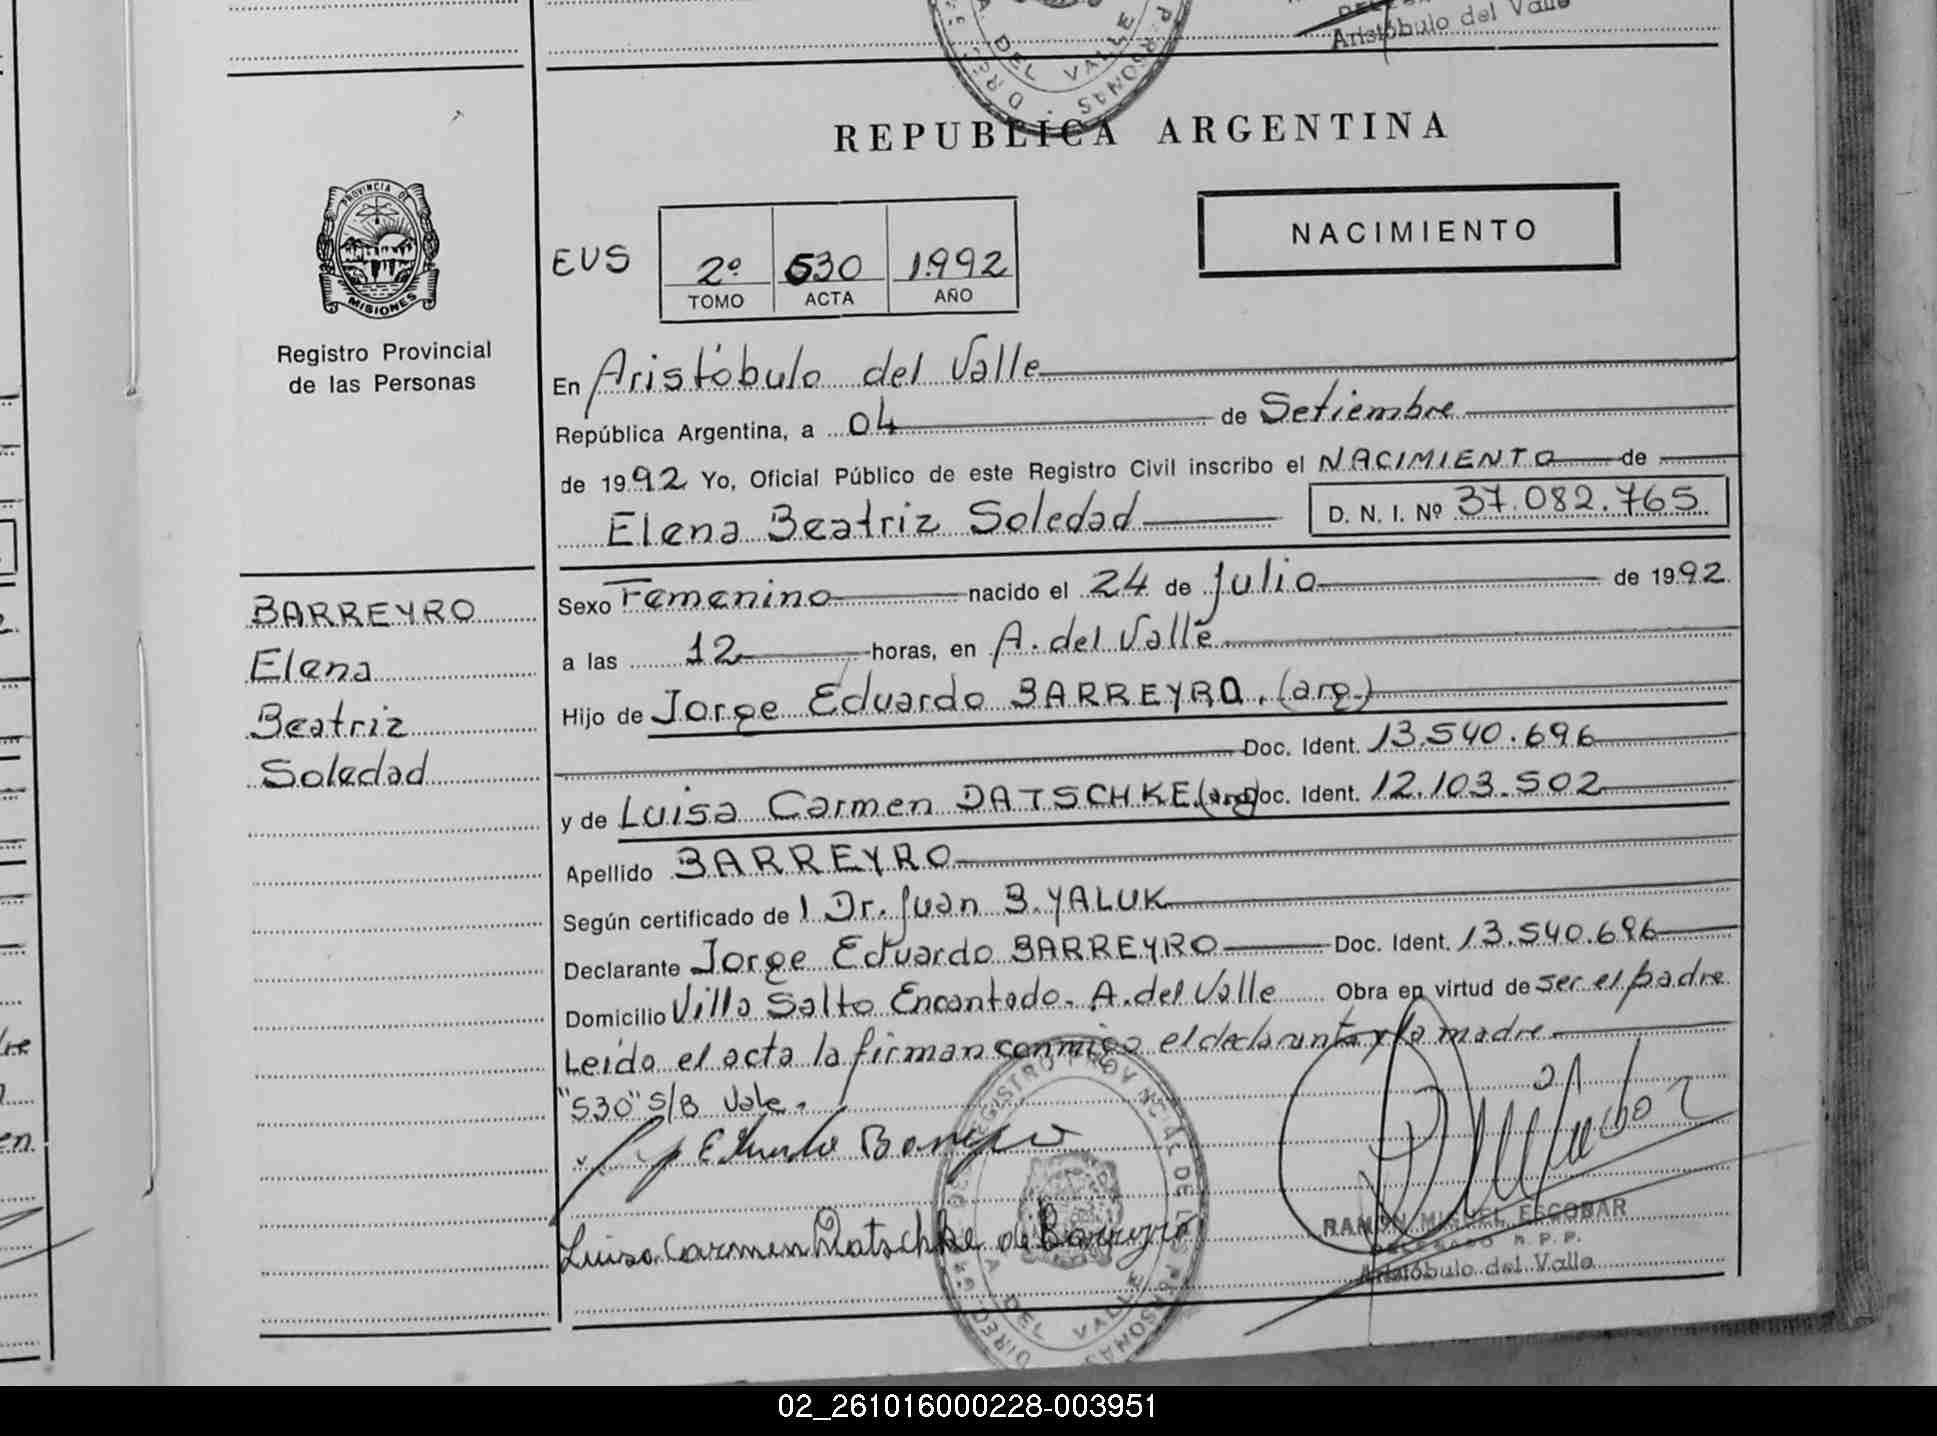 Aristóbulo del Valle
REPUBLICA ARGENTINA
PROVINCIA DE
MISIONES
Registro Provincial
de las Personas
EUS
2º 530 1992
TOMO ACTA AÑO
NACIMIENTO
En Aristóbulo del Valle
República Argentina, a 04 de Setiembre
de 1992 Yo, Oficial Público de este Registro Civil inscribo el NACIMIENTO de
Elena Beatriz Soledad D. N. I. Nº 37.082.765
BARREYRO
Elena
Beatriz
Soledad
Sexo Femenino nacido el 24 de Julio de 1992
a las 12 horas, en A. del Valle
Hijo de Jorge Eduardo BARREYRO. (arg.)
Doc. Ident. 13.540.696
y de Luisa Carmen DATSCHKE (arg) Doc. Ident. 12.103.502
Apellido BARREYRO
Según certificado de 1 Dr. Juan B. YALUK
Declarante Jorge Eduardo BARREYRO Doc. Ident. 13.540.696
Domicilio Villa Salto Encantado. A. del Valle Obra en virtud de ser el padre
Leída el acta la firman conmigo el declarante y la madre.
"530" S/B Vale.
Eduardo Barreyro
Luisa Carmen Datschke de Barreyro
RAMON MIGUEL ESCOBAR
DELEGADO R. P. P.
Aristóbulo del Valle
02_261016000228-003951